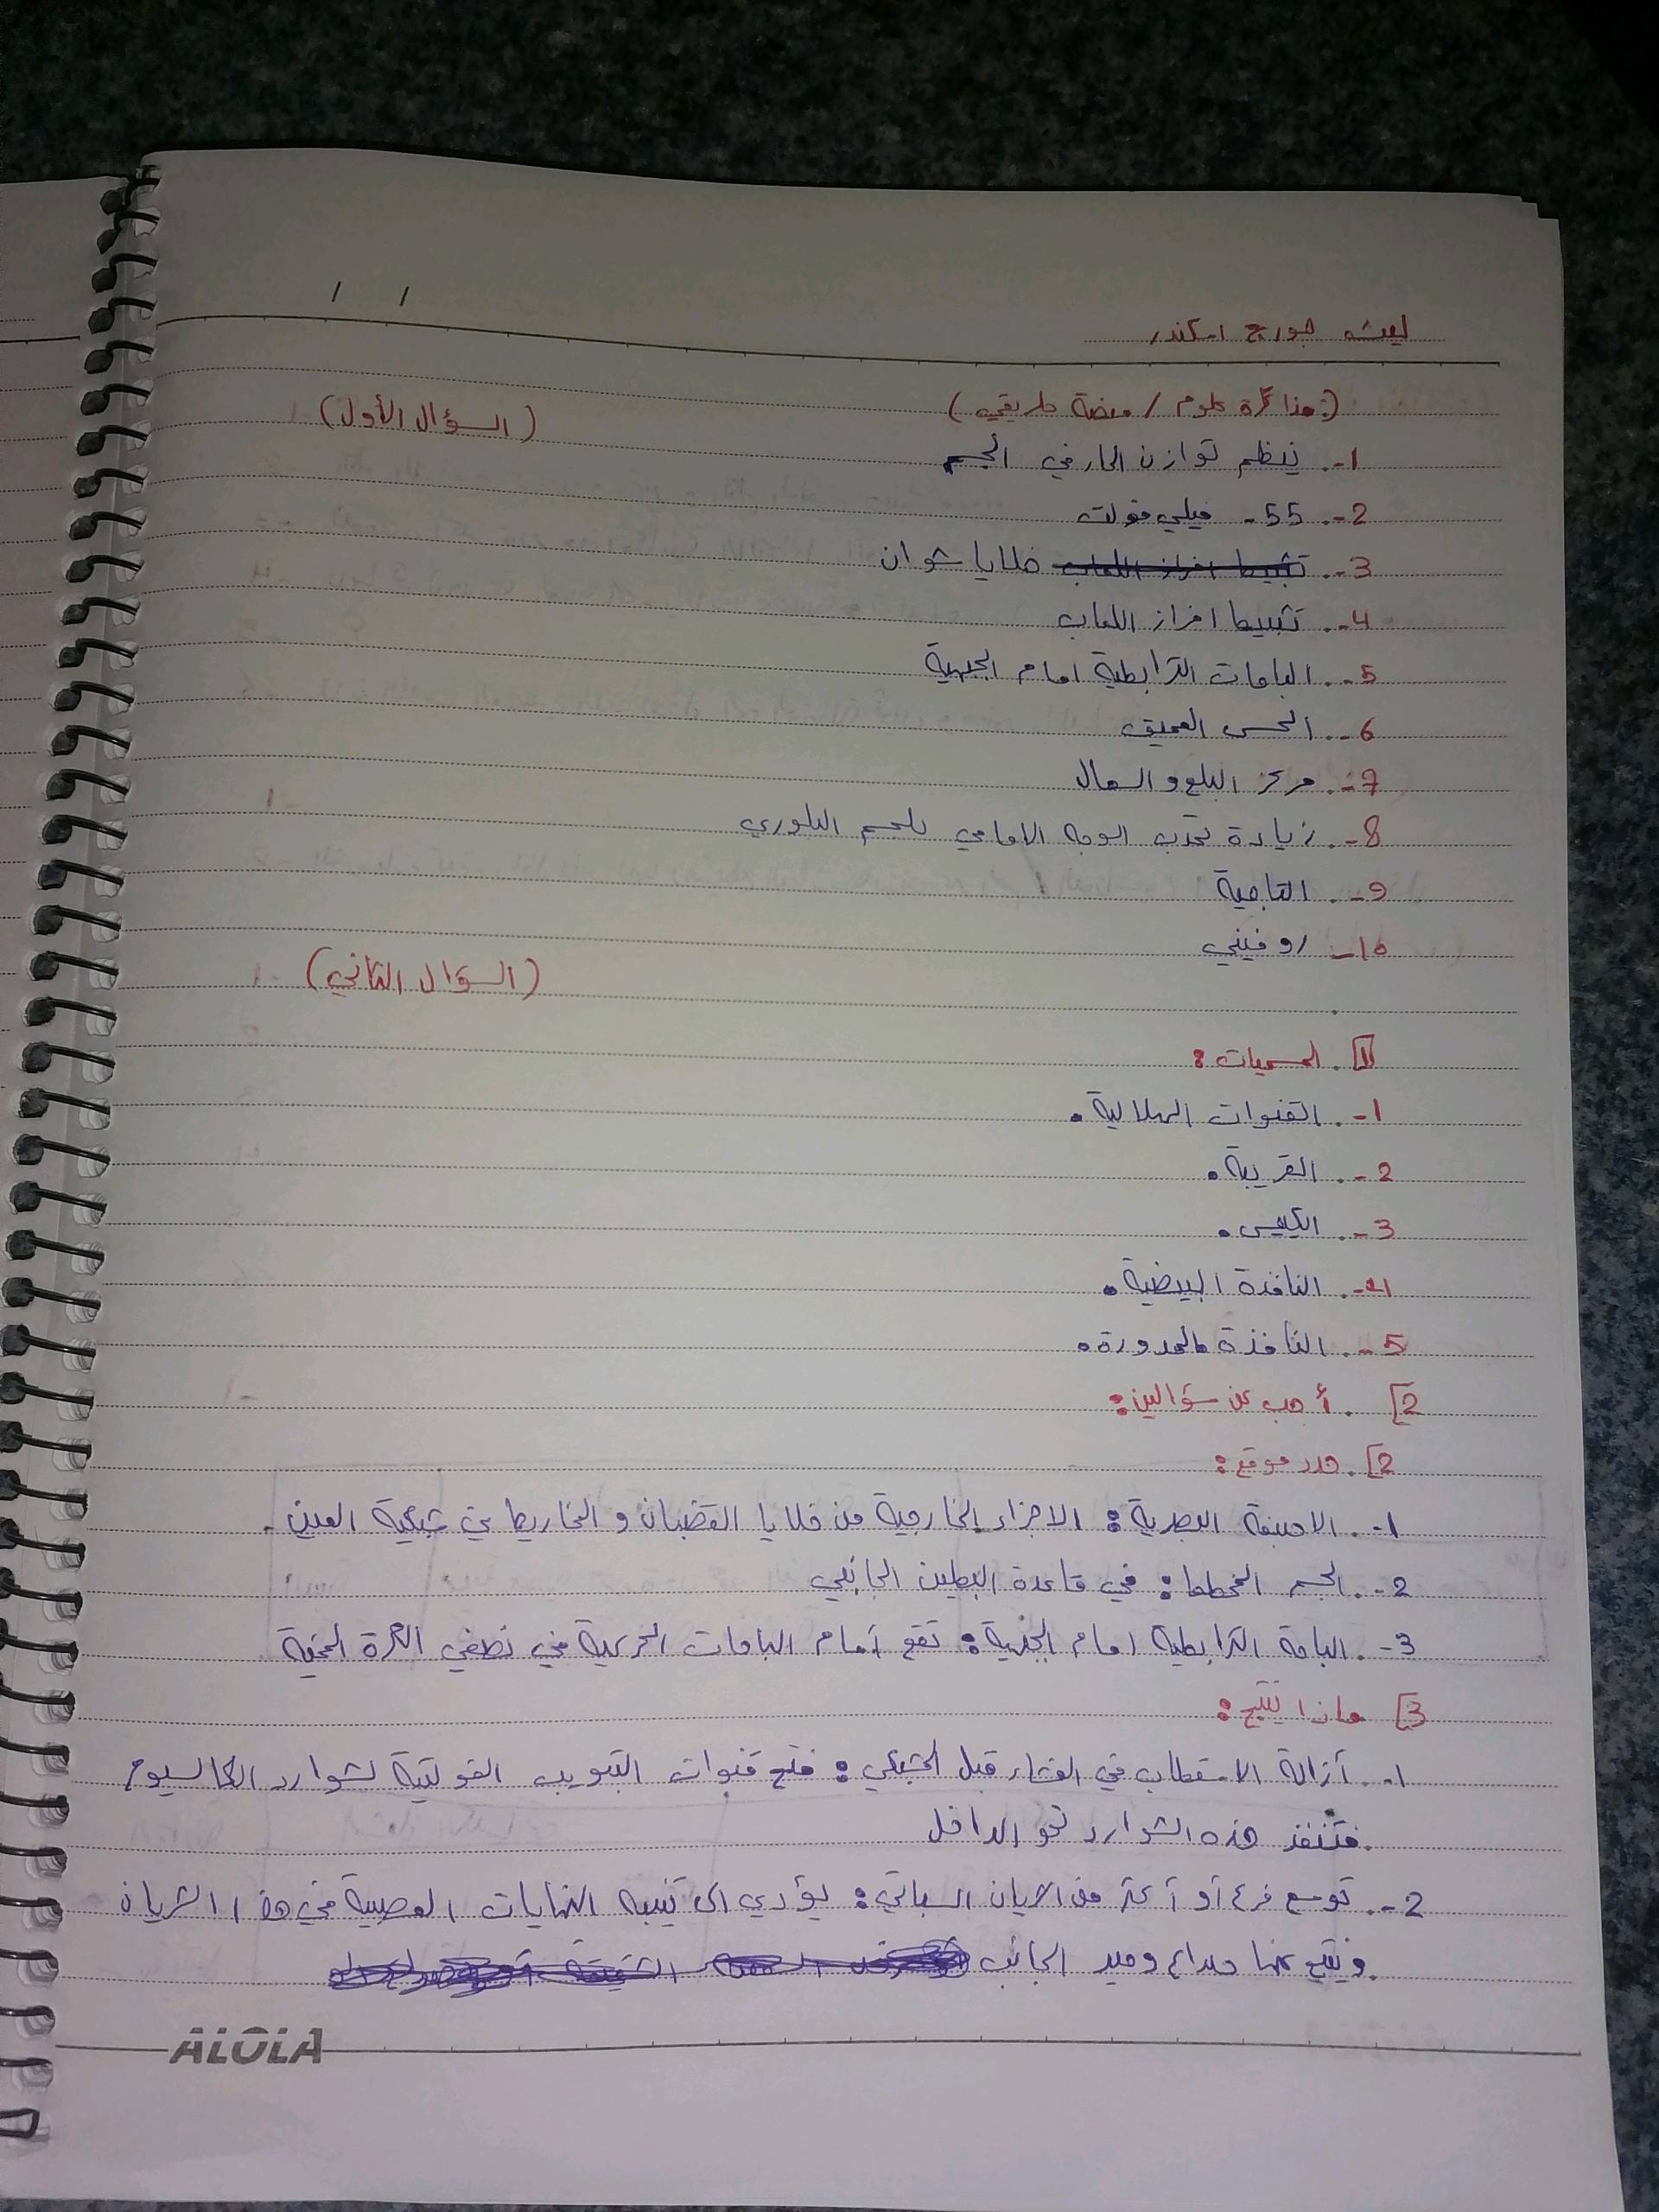 جورج اسكندر
(مذاكرة علوم / منصة طريقي)
(السؤال الأول)
1-. ينظم توازن الحار في الجسم
2-. 55- ميلي فولت
3-. تثبيط افراز اللعاب خلايا شوان
4-. تثبيط افراز اللعاب
5-. الباحات الترابطية امام الجبهية
6-. الحس العميق
7-. مركز البلع و السعال
8-. زيادة تحدب الوجه الامامي للجسم البلوري
9-. التاجية
10- روفيني
(السؤال الثاني)
1. المسميات:
1-. القنوات الهلالية.
2-. القريبة.
3-. الكييس.
4-. النافذة البيضية.
5-. النافذة المدورة.
2] . أجب عن سؤالين:
2]. حدد موقع:
1-. الاصبغة البصرية: الاجزاء الخارجية من خلايا القضبان و المخاريط في شبكية العين.
2-. الجسم المخطط: في قاعدة البطين الجانبي
3-. الباحة الترابطية امام الجبهية: تقع أمام الباحات الحركية في نصفي الكرة المخية
3] ماذا ينتج:
1-. أزالة الاستقطاب في الغشاء قبل المشبكي: فتح قنوات التبويب الفولتية لشوارد الكالسيوم
فتنفذ هذه الشوارد نحو الداخل
2-. توسع فرع أو أكثر من الشريان السباتي: يؤدي الى تنبيه النهايات العصبية في هذا الشريان
وينتج عنها صداع وحيد الجانب
ALOLA